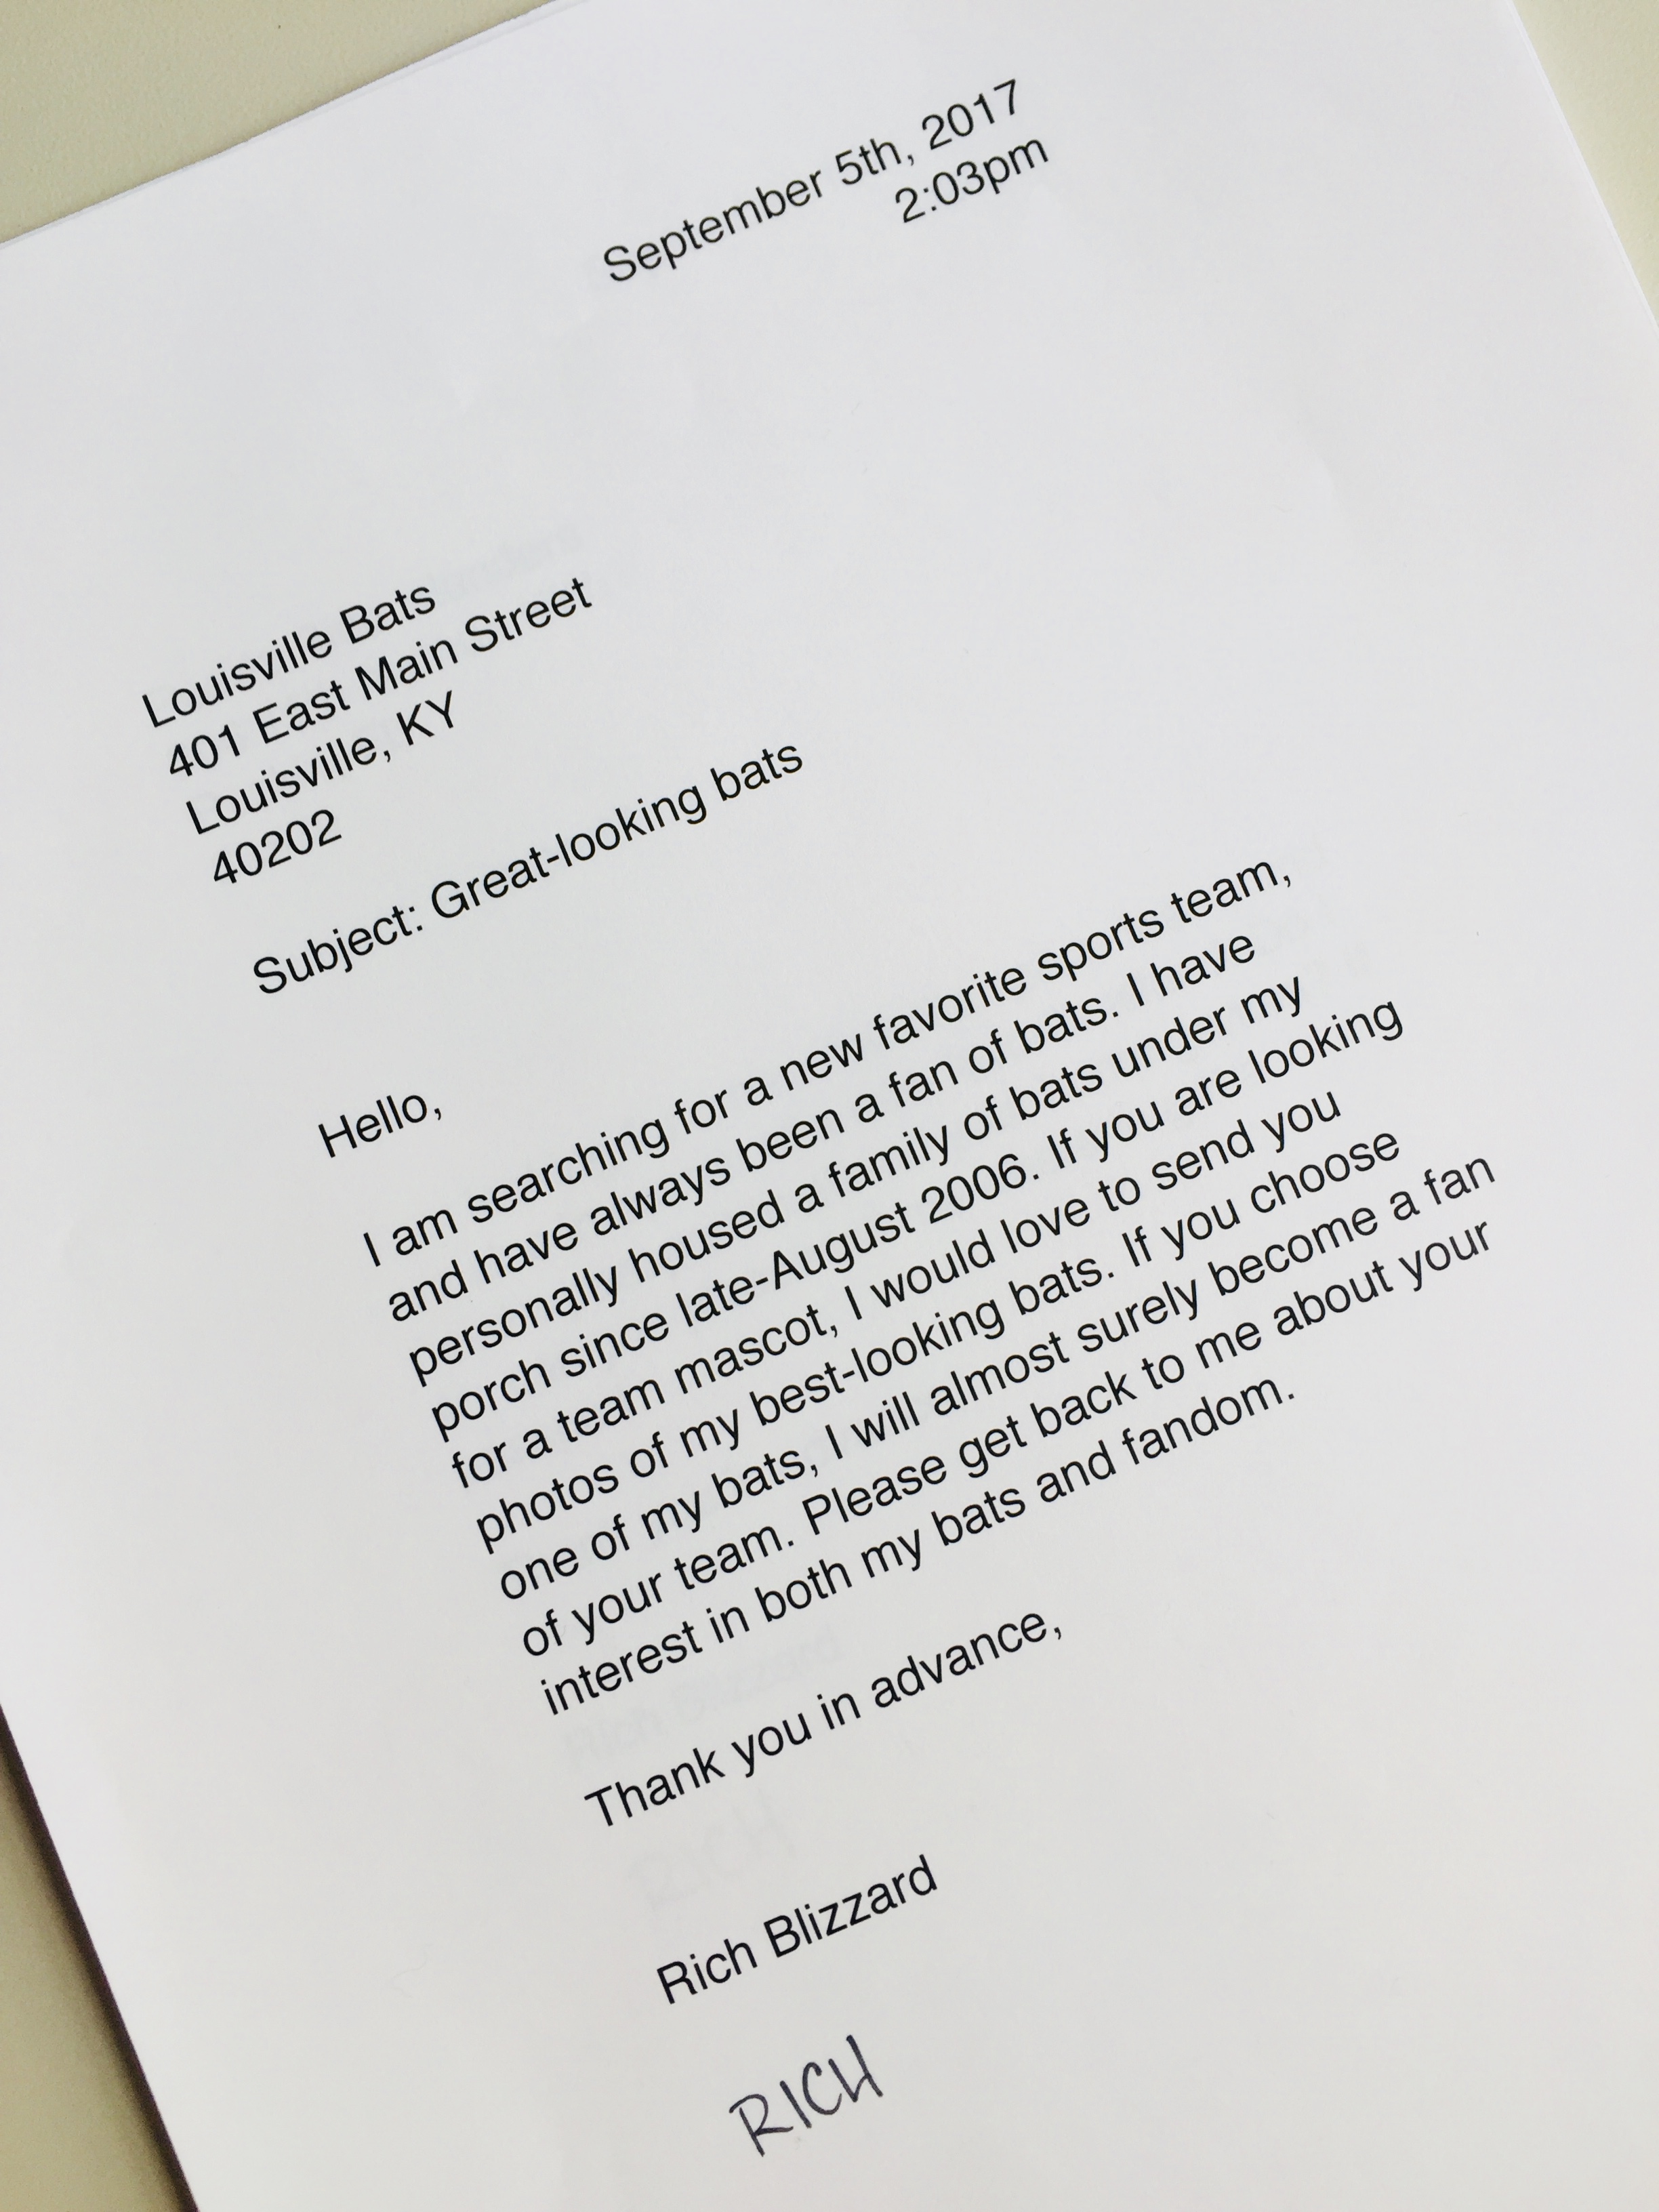 September 5th, 2017
2:03pm
Louisville Bats
401 East Main Street
Louisville, KY
40202
Subject: Great-looking bats
Hello,
I am searching for a new favorite sports team,
and have always been a fan of bats. I have
personally housed a family of bats under my
porch since late-August 2006. If you are looking
for a team mascot, I would love to send you
photos of my best-looking bats. If you choose
one of my bats, I will almost surely become a fan
of your team. Please get back to me about your
interest in both my bats and fandom.
Thank you in advance,
Rich Blizzard
RICH